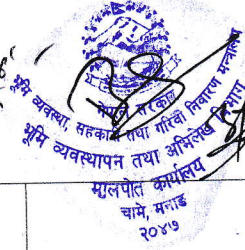 नेपाल सरकार
भूमि व्यवस्था, सहकारी तथा गरिवी निवारण मन्त्रालय
भूमि व्यवस्थापन तथा अभिलेख विभाग
मालपोत कार्यालय
चामे, मनाङ
२०४७